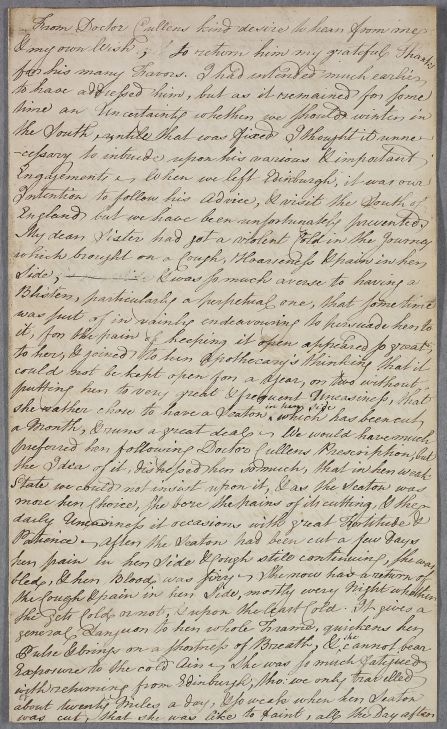 From Doctor Cullens kind desire to hear from me
& my own Wish, to return him my grateful Thanks
for his many Favors. I had intended much earlier
to have addressed him, but as it remained for some
time an Uncertainty whether we should winter in
the South, untile that was fixed I thought it unne-
-cessary to intrude upon his various & important
Engagements When we left Edinburgh, it was our
Intention to follow his Advice, & visit the South of
England but we have been unfortunately prevented
My dear Sister had got a violent Cold in the Journey
which brought on a Cough, Hoarseness & pain in her
Side, & was so much averse to having a
Blister, particularly a perpetual one, that some time
was past of in vainly endeavouring to persuade her to
it, for the pain of keeping it open appeared so great
to her, & joined to her Apothecary's thinking that it
could not be kept open for a Year, or two without
putting her to very great & frequent Uneasiness, that
she rather chose to have a Seaton in her Side which has been cut
a Month, & runs a great deal We would have much
preferred her following Doctor Cullens Prescription, but
the Idea of it, distressed her so much, that in her weak
State we could not insist upon it, & as the Seaton was
more her Choice, she bore the pains of its cutting, & the
daily Uneasiness it occasions with great Fortitude &
Patience after the Seaton had been cut a few Days
her pain in her Side & Cough still continuing, she was
bled, & her Blood, was fizey She now has a return of
the Cough & pain in her Side, mostly every Night whether
She gets Cold or not, & upon the least Cold. It gives a
general Languor to her whole Frame, quickens her
Pulse & brings on a shortness of Breath, & she cannot bear
Exposure to the cold Air She was so much fatigued
with returning from Edinburgh, tho' we only travelled
about twenty Miles a day, & so weak when her Seaton
was cut, that she was like to faint, all the Day after